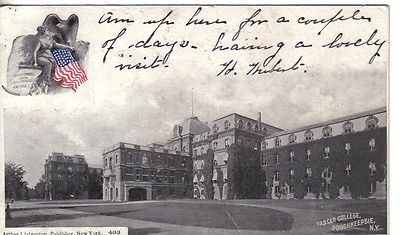 Am up here for a couple
of days - having a lovely
visit.
H.
VASSAR COLLEGE,
POUGHKEEPSIE,
N.Y.
Arthur Livingston, Publisher, New York. 488